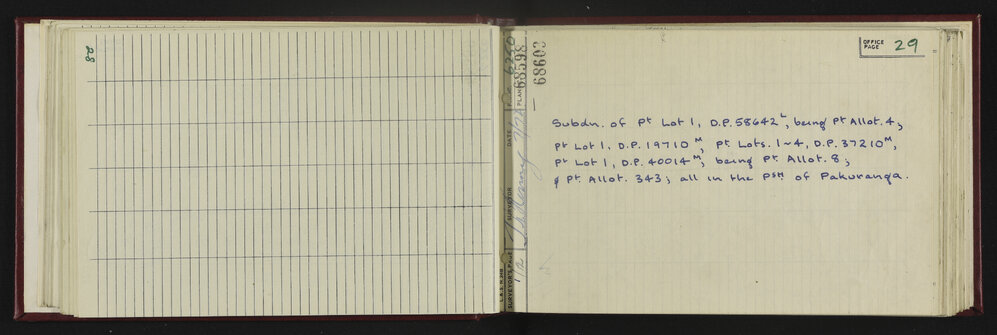 28
OFFICE PAGE 29
PLAN 68598
— 68603
DATE
SURVEYOR
SURVEYOR'S PAGE
Subdn. of Pt Lot 1, D.P. 58642ᴸ, being Pt Allot. 4;
Pt Lot 1, D.P. 19710ᴹ, Pt. Lots. 1~4, D.P. 37210ᴹ,
Pt Lot 1, D.P. 40014ᴹ, being Pt. Allot. 8;
& Pt. Allot. 343; all in the Psh of Pakuranga.